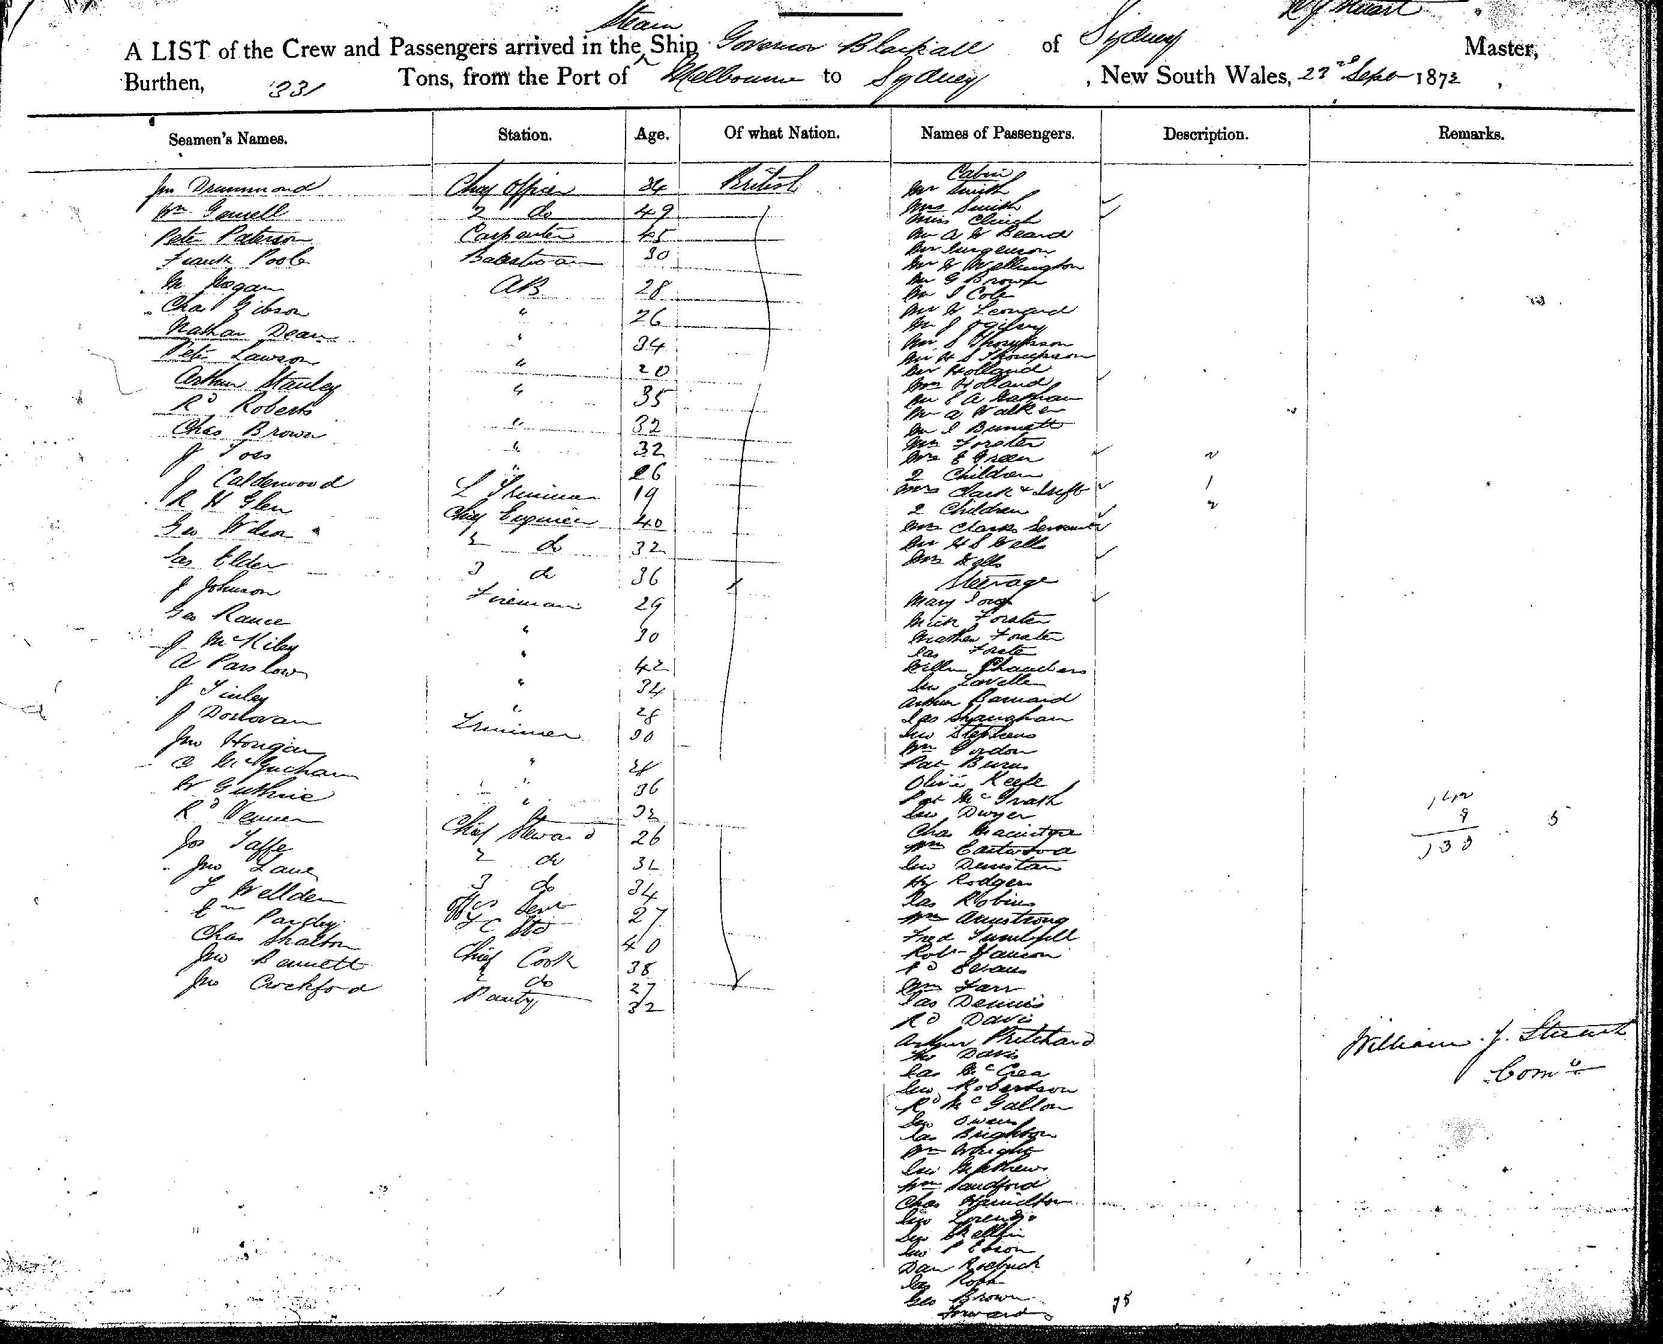 Steam
W J Stuart
A LIST of the Crew and Passengers arrived in the Ship Governor Blackall of Sydney Master,
Burthen, 331 Tons, from the Port of Melbourne to Sydney , New South Wales, 22nd Sept 1872
Seamen's Names. Station. Age. Of what Nation. Names of Passengers. Description. Remarks.
Jn Drummond Chief Officer 34 British
Wm Gowell 2 do 49
Peter Paterson Carpenter 45
Frank Poole 30
M Hogan AB 28
Chas Gibson " 26
Nathan Dean " 34
Peter Lawson " 20
Arthur Stanley " 35
Rd Roberts " 32
Chas Brown " 32
J Toss " 26
J Calderwood L Trimmer 19
R H Glen Chief Engineer 40
Geo Wilson 2 do 32
Jas Elder 3 do 36
J Johnson Fireman 29
Geo Rance " 30
J McKiley " 42
A Parslow " 34
J Finley " 28
J Donovan Trimmer 30
Jno Horigan "
C McGucham " 36
W Guthrie " 32
Rd Venner Chief Steward 26
Jos Taffe 2 do 32
Jno Lane 3 do 34
F Wellden 27
Em Pardey 40
Chas Shalton Chief Cook 38
Jno Bennett 2 do 27
Jno Crockford Pantry 32
Cabin
Mr Smith
Mrs Smith
Miss Clinch
Mr A W Beard
Mr Jurgenson
Mr W Wellington
Mr G Brown
Mr J Cole
Mr W Leonard
Mr J Ogilvy
Mr S Thompson
Mr H S Thompson
Mr Holland
Mrs Holland
Mr S A Nathan
Mr A Walker
Mr J Burnett
Mrs Forster
Mrs E Green
2 Children
Mrs Clark & Inft
2 Children
Mrs Clarks Servant
Mr H S Wells
Mrs Wells
Steerage
Mary
Mich Forster
Mathew Forster
Jas Forster
Willm Chambers
Geo Lavelle
Arthur Barnard
Jas Shanghan
Geo Stephens
Wm Gordon
Pat Burns
Oliver Keefe
Pat McGrath
Geo Dwyer
Chas Macintyre
Wm Eastwood
Geo Denistan
Hy Rodgers
Jas Robins
Wm Armstrong
Fred Turnbull
Robt
Ed Evans
Wm Farr
Jas Dennis
Rd Davis
Arthur Pritchard
Davis
Jas McCrea
Geo Robertson
Rd McGallon
Geo Owens
Jas Brighton
Wm Wright
Geo Mathews
Wm Sandford
Chas Hamilton
Geo Lorenzo
Geo
Geo
Dan Roebuck
Jas Ross
Geo Brown
Forward 75
142
9
133
5
William J. Stuart
Comr